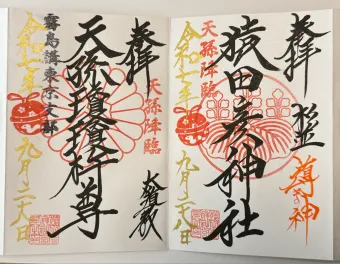 奉拝
杉並
導きの神
猿田彦神社
天孫降臨
令和七年
九月二十八日
奉拝
天孫降臨
天孫瓊瓊杵尊
霧島講東京支部
令和七年
九月二十八日